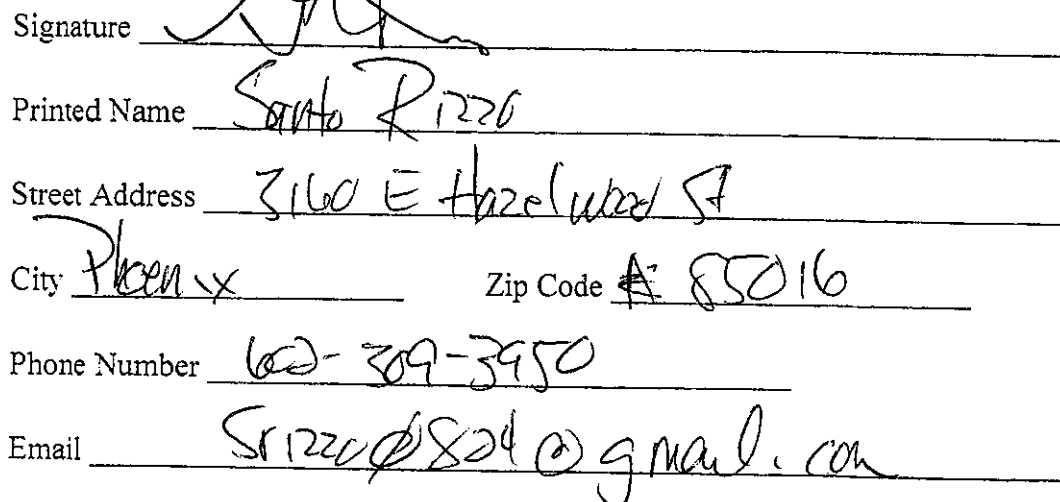 Signature
Printed Name Santo Rizzo
Street Address 3160 E Hazelwood St
City Phoenix Zip Code 85016
Phone Number 602-309-3950
Email Srizzo0824@gmail.com